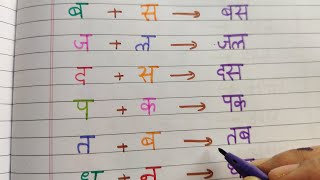 ब + स → बस
ज + ल → जल
द + स → दस
प + क → पक
त + ब → तब